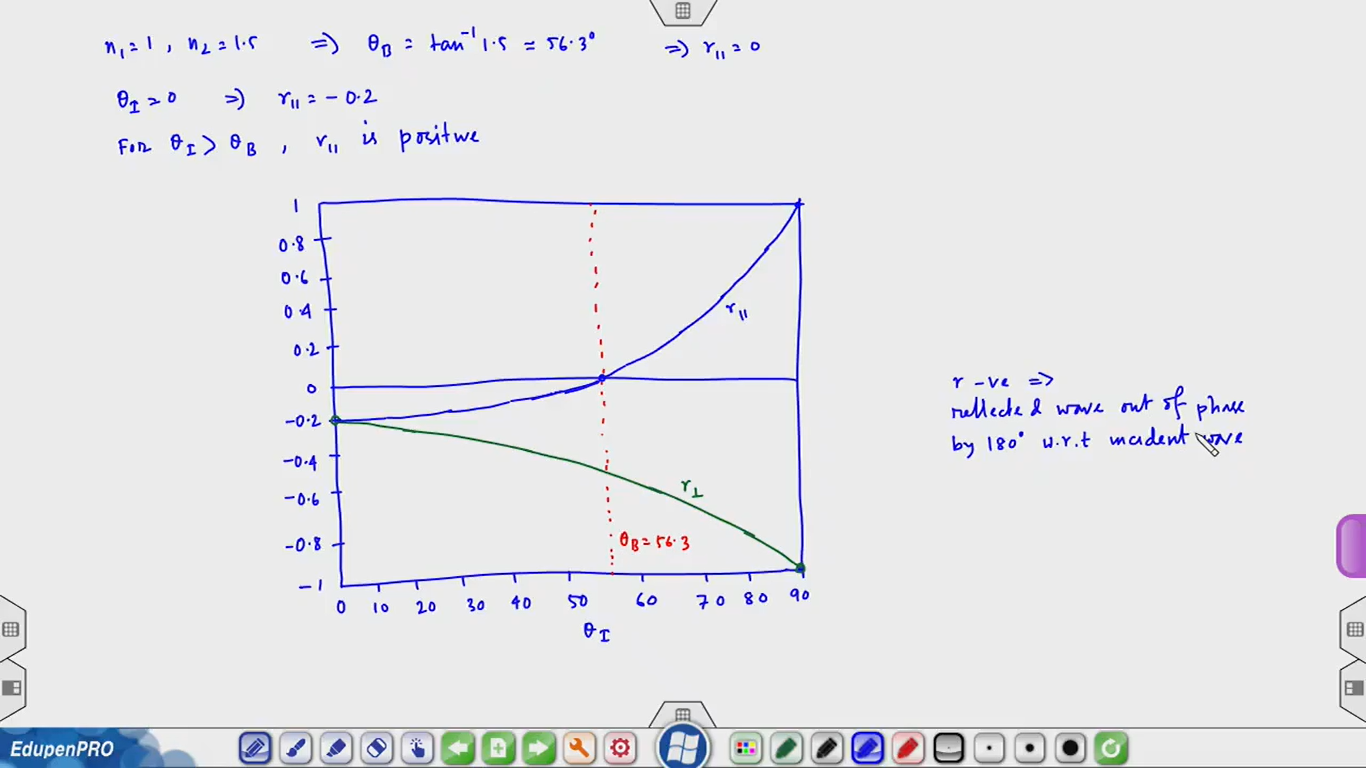 n₁=1 , n₂=1.5 ⇒ θ_B = tan⁻¹ 1.5 = 56.3° ⇒ r_∥ = 0
θ_I = 0 ⇒ r_∥ = -0.2
For θ_I > θ_B , r_∥ is positive
1
0.8
0.6
0.4
0.2
0
-0.2
-0.4
-0.6
-0.8
-1
r_∥
r_⊥
θ_B = 56.3
0 10 20 30 40 50 60 70 80 90
θ_I
r -ve ⇒
reflected wave out of phase
by 180° w.r.t incident wave
EdupenPRO